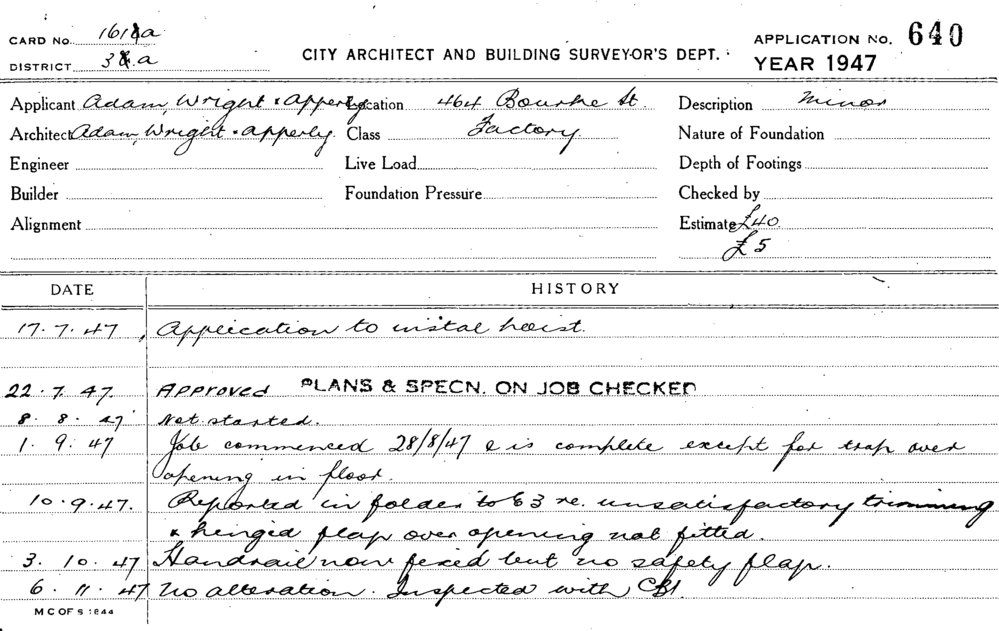 CARD No. 1618a
DISTRICT 38.a
CITY ARCHITECT AND BUILDING SURVEYOR'S DEPT.
APPLICATION No. 640
YEAR 1947
Applicant Adam, Wright & Apperly Location 464 Bourke St. Description Minor
Architect Adam, Wright & Apperly Class Factory Nature of Foundation
Engineer Live Load Depth of Footings
Builder Foundation Pressure Checked by
Alignment Estimate £40
£5
DATE HISTORY
17.7.47 Application to instal hoist.
22.7.47. Approved PLANS & SPECN. ON JOB CHECKED
8.8.47 Not started.
1.9.47 Job commenced 28/8/47 & is complete except for trap over
opening in floor.
10.9.47. Reported in folder to 63 re. unsatisfactory trimming
& hinged flap over opening not fitted.
3.10.47 Handrail now fixed but no safety flap.
6.11.47 No alteration. Inspected with
M C OF S 1844